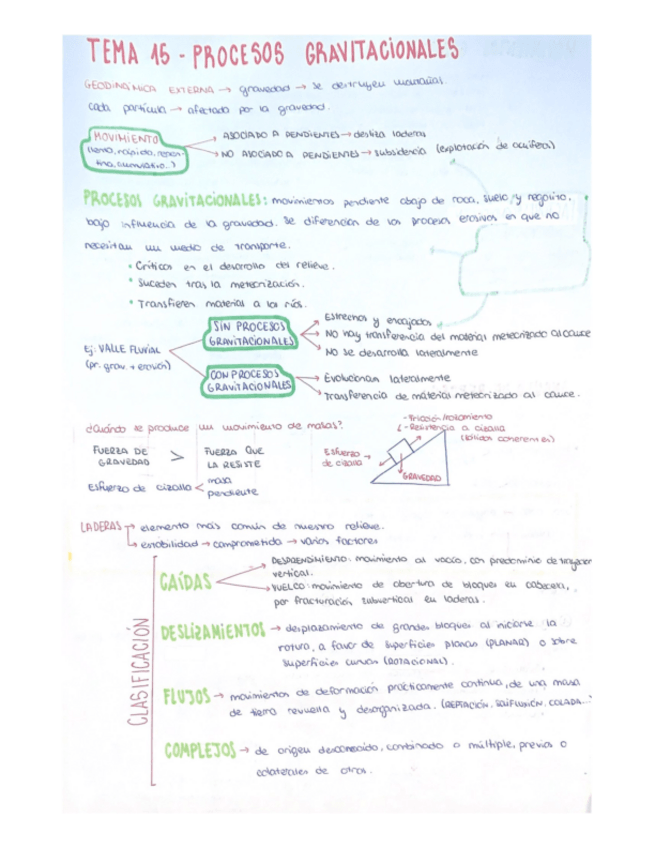 TEMA 15 - PROCESOS GRAVITACIONALES
GEODINÁMICA EXTERNA → gravedad → se destruyen montañas.
cada partícula → afectada por la gravedad.
MOVIMIENTO
(lento, rápido, repen-
tino, acumulativo..)
→ ASOCIADO A PENDIENTES → desliza laderas
→ NO ASOCIADO A PENDIENTES → subsidencia (explotación de acuíferos)
PROCESOS GRAVITACIONALES: movimientos pendiente abajo de roca, suelo y regolito,
bajo influencia de la gravedad. Se diferencian de los procesos erosivos en que no
necesitan un medio de transporte.
• Críticos en el desarrollo del relieve.
• Suceden tras la meteorización.
• Transfieren material a los ríos.
Ej: VALLE FLUVIAL
(pr. grav. + erosión)
SIN PROCESOS
GRAVITACIONALES
→ Estrechos y encajados
→ NO hay transferencia del material meteorizado al cauce
→ NO se desarrolla lateralmente
CON PROCESOS
GRAVITACIONALES
→ Evolucionan lateralmente
→ Transferencia de material meteorizado al cauce.
¿Cuándo se produce un movimiento de masas?
FUERZA DE
GRAVEDAD
>
FUERZA QUE
LA RESISTE
Esfuerzo de cizalla < masa
pendiente
- Fricción/rozamiento
- Resistencia a cizalla
(sólidos coherentes)
Esfuerzo
de cizalla
GRAVEDAD
LADERAS → elemento más común de nuestro relieve.
→ estabilidad → comprometida → varios factores
CLASIFICACIÓN
CAÍDAS
→ DESPRENDIMIENTO: movimiento al vacío, con predominio de trayector
vertical.
→ VUELCO: movimiento de abertura de bloques en cabecera,
por fracturación subvertical en laderas.
DESLIZAMIENTOS → desplazamiento de grandes bloques al iniciarse la
rotura, a favor de superficies planas (PLANAR) o sobre
superficies curvas (ROTACIONAL).
FLUJOS → movimientos de deformación prácticamente continua, de una masa
de tierra revuelta y desorganizada. (REPTACIÓN, SOLIFLUXIÓN, COLADA...
COMPLEJOS → de origen desconocido, combinado o múltiple, previos o
colaterales de otros.